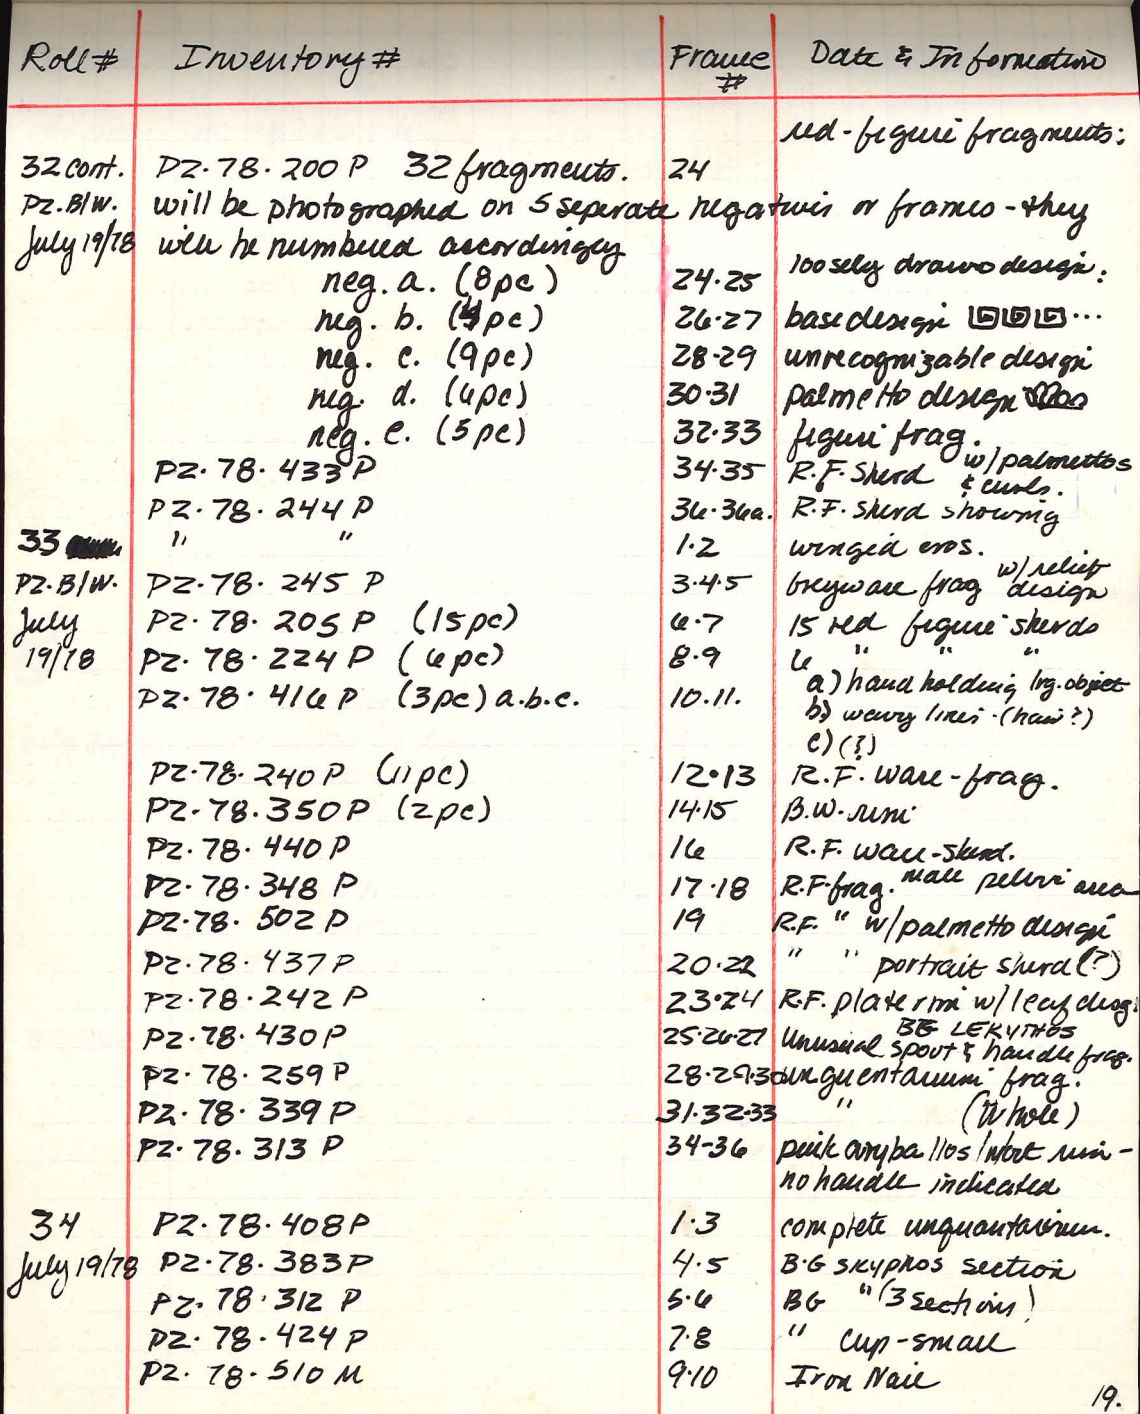 Roll # Inventory # Frame # Date & Information
red-figure fragments:
32 cont. PZ.78.200 P 32 fragments. 24
PZ.B/W. will be photographed on 5 seperate negatives or frames - they
July 19/78 will be numbered accordingly
neg. a. (8pc) 24.25 loosely drawn design.
neg. b. (4pc) 26.27 base design ...
neg. c. (9pc) 28-29 unrecognizable design
neg. d. (6pc) 30.31 palmetto design
neg. e. (5pc) 32.33 figure frag.
PZ.78.433 P 34.35 R.F. Sherd w/palmettos & curls.
PZ.78.244 P 36.36a. R.F. sherd showing
33 " " 1.2 winged eros.
PZ.B/W. PZ.78.245 P 3.4.5 Greyware frag w/relief design
July PZ.78.205 P (15pc) 6.7 15 red figure sherds
19/78 PZ.78.224 P (6pc) 8.9 6 " " "
PZ.78.416 P (3pc) a.b.c. 10.11. a) hand holding lrg. object
b) wavy lines - (hair?)
c) (?)
PZ.78.240 P (11pc) 12.13 R.F. ware-frag.
PZ.78.350 P (2pc) 14.15 B.W. rim
PZ.78.440 P 16 R.F. ware-sherd.
PZ.78.348 P 17.18 R.F. frag. male pelvic area
PZ.78.502 P 19 R.F. " w/palmetto design
PZ.78.437 P 20.22 " " portrait sherd (?)
PZ.78.242 P 23.24 R.F. plate rim w/leaf desg.
PZ.78.430 P 25.26.27 BG LEKYTHOS
Unusual spout & handle frag.
PZ.78.259 P 28.29.30 unguentarium frag.
PZ.78.339 P 31.32.33 " (Whole)
PZ.78.313 P 34-36 pink aryballos/ rim -
no handle indicated
34 PZ.78.408 P 1.3 complete unguantarium.
July 19/78 PZ.78.383 P 4.5 B.G skyphos section
PZ.78.312 P 5.6 BG " (3 sections)
PZ.78.424 P 7.8 " cup-small
PZ.78.510 M 9.10 Iron Nail
19.